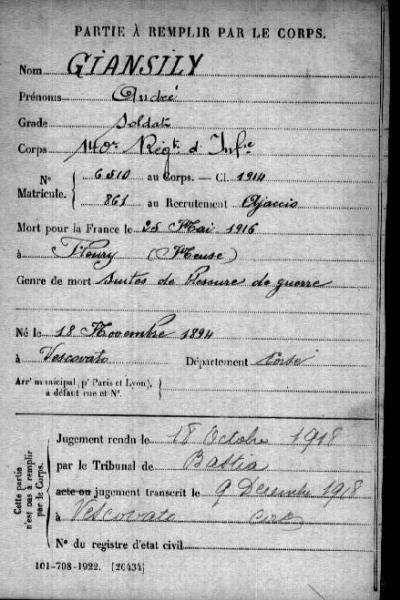 PARTIE À REMPLIR PAR LE CORPS.
Nom GIANSILY
Prénoms André
Grade Soldat
Corps 140e Régt. d' Infie
N° Matricule. { 6510 au Corps. — Cl. 1914
861 au Recrutement Ajaccio
Mort pour la France le 25 Mai 1916
à Fleury (Meuse)
Genre de mort Suites de blessure de guerre
Né le 18 Novembre 1894
à Vescovato Département Corse
Arrt municipal (pr Paris et Lyon), à défaut rue et N°.
Cette partie n'est pas à remplir par le Corps.
Jugement rendu le 18 Octobre 1918
par le Tribunal de Bastia
acte ou jugement transcrit le 9 Décembre 1918
à Vescovato Corse
N° du registre d'état civil
101-708-1922. [26434]